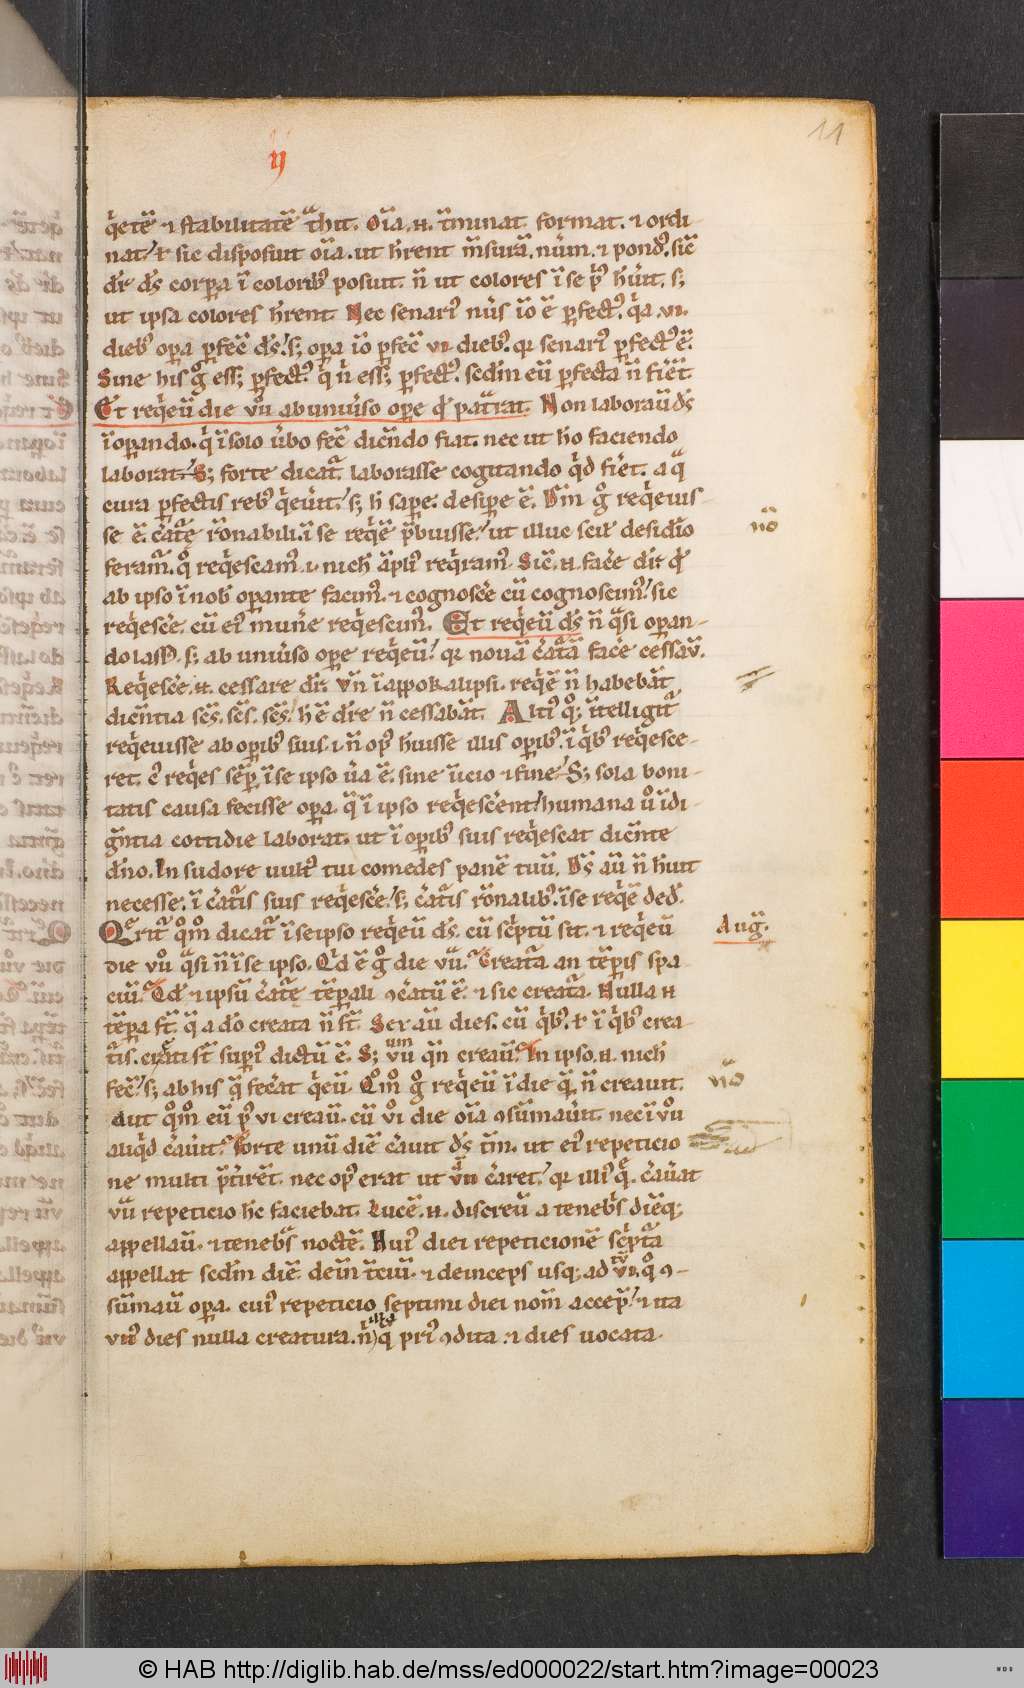 11
ij
q̇etē ⁊ stabilitatē t̄hit. Oīa .n. t̄minat. format. ⁊ ordi-
nat. ł sic disposuit oīa. ut h̄rent m̄surā. num̄. ⁊ pond᷒. sic̄
dr̄ ds̄ corpa ī colorib᷒ posuit. n̄ ut colores ī se p᷒ h̄uit. s;
ut ipsa colores h̄rent Nec senari᷒ nūs iō ē pfect᷒. q̇a .vi.
dieb᷒ opa pfec̄ ds̄. s; opa iō pfec̄ vi dieb᷒. qr senari᷒ pfect᷒ ē.
Sine his g̊ ess; pfect᷒. q̇ n̄ ess; pfect᷒. sedm eū pfecta n̄ fiēt.
Et req̇eū die vii̊ ab uniuso ope qd pat̄rat. Non laboraū ds̄
īopando. q̇ ī solo ūbo fec̄ dicendo fiat. nec ut ho faciendo
laborat. S; forte dicat᷒ laborasse cogitando q̇d fiet. a q̄
cura pfectis reb᷒ q̇euit. s; h̄ sape. desipe ē. Vn̄ g̊ req̇euis-
se ē. c̄at̄e rōnabili. ī se req̇ē p̄buisse. ut illuc scil̄ desidio
feram᷒. q̊ req̇escam᷒ .i. nich̄ āpli᷒ req̇ram᷒. Sic̄ .n. fac̄e dr̄ qd
ab ipso ī nob̄ opante facim᷒. ⁊ cognosc̄e cū cognoscim᷒. sic
req̇esc̄e. cū ei᷒ mun̄e req̇escim᷒. Et req̇eū ds̄ n̄ q̄si opan-
do lass᷒. s; ab uniuso ope req̇eū. qr nouā c̄at̄ā fac̄e cessaū.
Req̇esc̄e .n. cessare dr̄. Vn̄ ī appokalipsi. req̇ē n̄ habebāt
dicentia sc̄s. sc̄s. sc̄s. h̄ ē dr̄e n̄ cessabāt. Alti᷒ q̊; ītelligit᷒
req̇euisse ab opib᷒ suis .i. n̄ op᷒ h̄uisse illis opib᷒. ī q̇b᷒ req̇esce-
ret. c᷒ req̇es sēp ī se ipso ūa ē. sine īicio ⁊ fine. S; sola boni-
tatis causa fecisse opa. q̄ ī ipso req̇escēnt. humana ū̊ īdi-
gn̄tia cottidie laborat. ut ī opib᷒ suis req̇escat dicente
dn̄o. In sudore uult᷒ tui comedes panē tuū. Ds̄ aū n̄ h̄uit
necesse. ī c̄at̄is suis req̇esc̄e. s; c̄at̄is rōnalib᷒. ī se req̇ē ded̄.
Q̄rit᷒ q̊m̊ dicat᷒ ī seipso req̇eū ds̄. cū sc̄ptū sit. ⁊ req̇eū
Auḡ.
die vii̊ q̄si n̄ ī se ipso. Qd ē g̊ die vii̊. Creatā an tēpis spa
ciū. Sd ⁊ ipsū c̄at̄e tēpali ꝯc̄atū ē. ⁊ sic creatā. Nulla n
tēpa st̄. q̄ a dō creata n̄ st̄. Sex aū dies. cū q̇b᷒. ł ī q̇b᷒ crea-
t̄is. creāti st̄ supi᷒ dictū ē. S; vii̊ q̄n creaū. In ipso .n. nich̄
um
fec̄. s; ab his q̄ fec̄at q̇eū. Q̊m̊ g̊ req̇eū ī die q̄ n̄ creauit.
nō
Aut q̊m̊ eū p᷒ vi creaū. cū vi̊ die oīa ꝯsumāuit. nec ī vii̊
aliq̇d c̄auit. Forte unū diē c̄auit ds̄ tm̄. ut ei᷒ repeticio
ne multi p̄t̄iret. nec op᷒ erat ut vii c̄aret. qr illi᷒ q̄ c̄auat
vii̊ repeticio h̄c faciebat. Lucē .n. discreū a tenebs̄ diēq;
appellaū. ⁊ tenebs̄ noctē. Hui᷒ diei repeticionē sc̄pt̄a
appellat sedm diē. dein tc̄iū. ⁊ deinceps usq; ad vi. q̊ ꝯ-
sumaū opa. cui᷒ repeticio septimi diei nom̄ accep̄. ⁊ ita
vii᷒ dies nulla creatura. n̄ illa q̄ pri᷒ ꝯdita. ⁊ dies uocata.
nō
© HAB http://diglib.hab.de/mss/ed000022/start.htm?image=00023